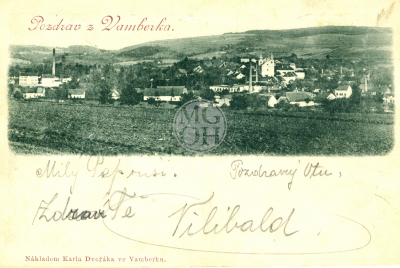 Pozdrav z Vamberka.
MG
OH
Milý
Pozdravuj Otu,
Zdraví Tě
Vilibald
Nákladem Karla Dvořáka ve Vamberku.